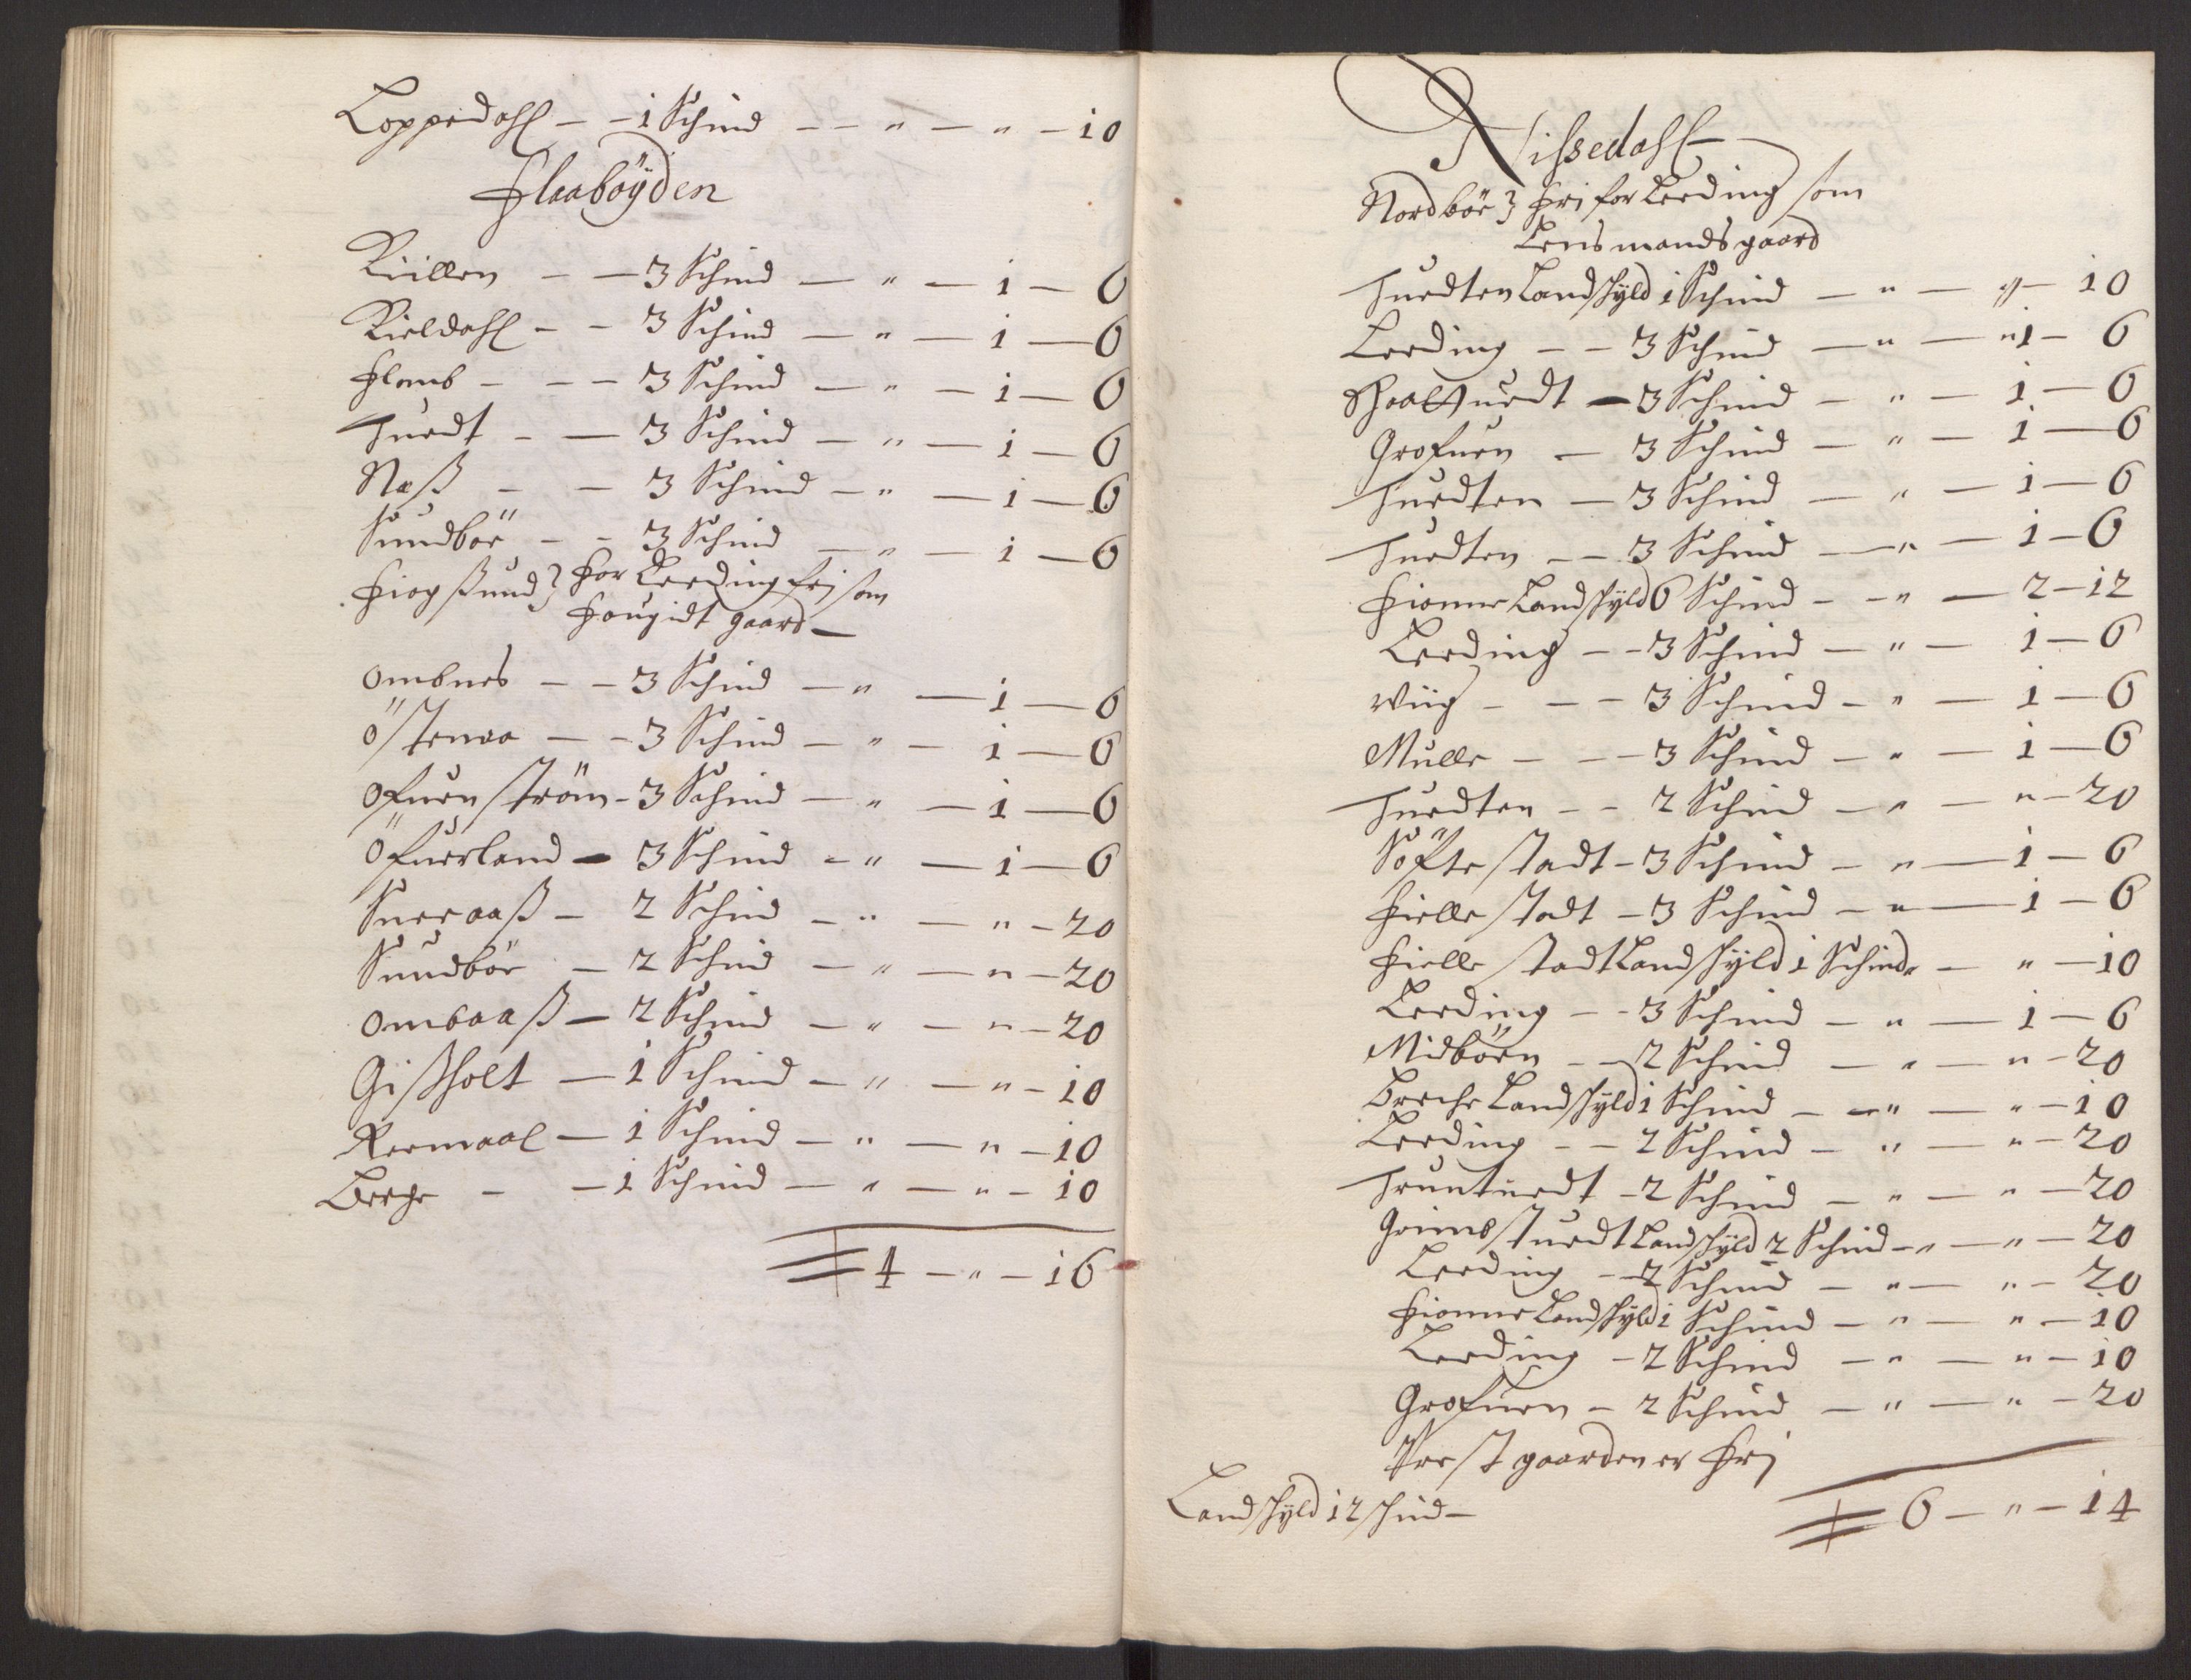 Loppedahl – – 1 Schind – – " – " – 10
Flaabøÿden
Kiillen – – 3 Schind – " – 1 – 6
Kieldahl – – 3 Schind – " – 1 – 6
– – – 3 Schind – " – 1 – 6
Tuedt – – 3 Schind – " – 1 – 6
Næß – – 3 Schind – " – 1 – 6
Sundbör – – 3 Schind – " – 1 – 6
for Leeding fri som
gaard –
Ombnes – – 3 Schind – " – 1 – 6
Östenaa – – 3 Schind – " – 1 – 6
Ofuenström – 3 Schind – " – 1 – 6
Öfuerland – 3 Schind – " – 1 – 6
Sneraaß – 2 Schind – " – " – 20
Sundbör – 2 Schind – " – " – 20
Ombaaß – 2 Schind – " – " – 20
Gißholt – 1 Schind – " – " – 10
Reemaal – 1 Schind – " – " – 10
Berge – – 1 Schind – " – " – 10
4 – " – 16
Nissedahl
Nordbör 3 fri for Leeding som
Lensmands gaard
Tuedten Landschÿld 1 Schind – " – " – 10
Leeding – – 3 Schind – " – " 1 – 6
Haatuedt – 3 Schind – " – 1 – 6
Grofuen – 3 Schind – " – 1 – 6
Tuedten – 3 Schind – " – 1 – 6
Tuedten – – 3 Schind – " – 1 – 6
Fionne Landschÿld 6 Schind – – " – 2 – 12
Leeding – – 3 Schind – " – 1 – 6
Wiig – – – 3 Schind – " – 1 – 6
Mulle – – – 3 Schind – " – 1 – 6
Tuedten – – 2 Schind – " – " – 20
Söftestadt – 3 Schind – " – 1 – 6
Fiellestadt – 3 Schind – " – 1 – 6
Fiellestadt Landschÿld 1 Schind " – " – 10
Leeding – – 3 Schind – " – 1 – 6
Midbøen – – 2 Schind – " – " – 20
Berche Landschÿld 1 Schind – – " – " – 10
Leeding – – 2 Schind – " – " – 20
Truntuedt – 2 Schind – " – " – 20
Grimstuedt Landschÿld 2 Schind – " – " – 20
Leeding – – 2 Schind – " – " – 20
Fionne Landschÿld 1 Schind – " – " – 10
Leeding – 2 Schind – " – " – 10
Grofuen – 2 Schind – " – " – 20
Prestgaarden er fri
Landschÿld 12 schind –
6 – " – 14